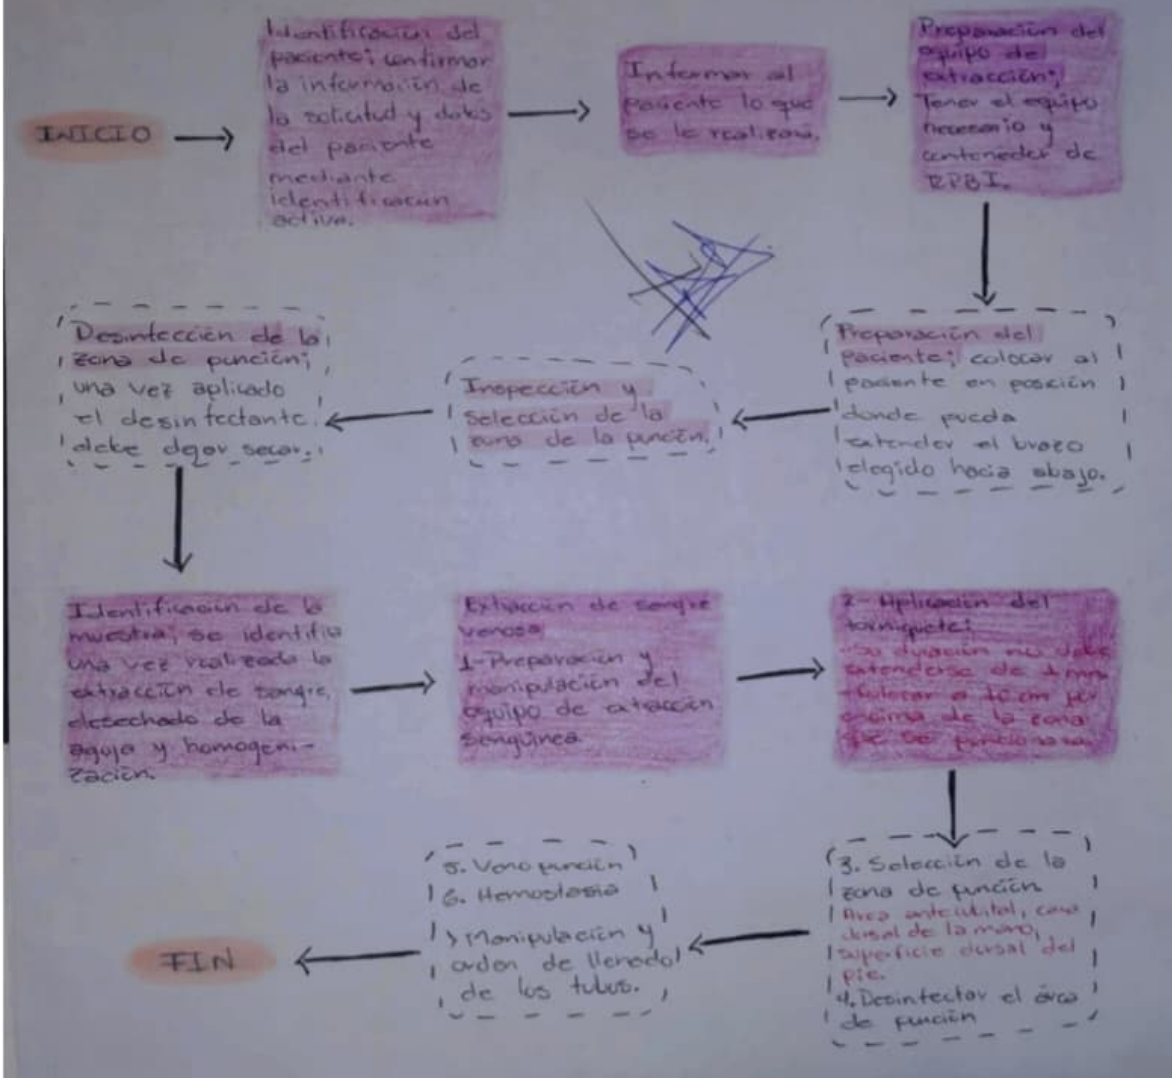 INICIO
Identificación del
paciente; confirmar
la información de
la solicitud y datos
del paciente
mediante
identificación
activa.
Informar al
paciente lo que
se le realizará.
Preparación del
equipo de
extracción;
Tener el equipo
necesario y
contenedor de
RPBI.
Preparación del
paciente; colocar al
paciente en posición
donde pueda
extender el brazo
elegido hacia abajo.
Inspección y
selección de la
zona de la punción.
Desinfección de la
zona de punción;
una vez aplicado
el desinfectante
debe dejar secar.
Identificación de la
muestra; se identifica
una vez realizada la
extracción de sangre,
desechado de la
aguja y homogeni-
zación.
Extracción de sangre
venosa
1-Preparación y
manipulación del
equipo de extracción
sanguínea
2-Aplicación del
torniquete:
-Su duración no debe
extenderse de 1 min
-Colocar a 10 cm por
encima de la zona
que se puncionará
3. Selección de la
zona de punción
Área antecubital, cara
dorsal de la mano,
superficie dorsal del
pie.
4. Desinfectar el área
de punción
5. Veno punción
6. Hemostasia
> Manipulación y
orden de llenado
de los tubos.
FIN